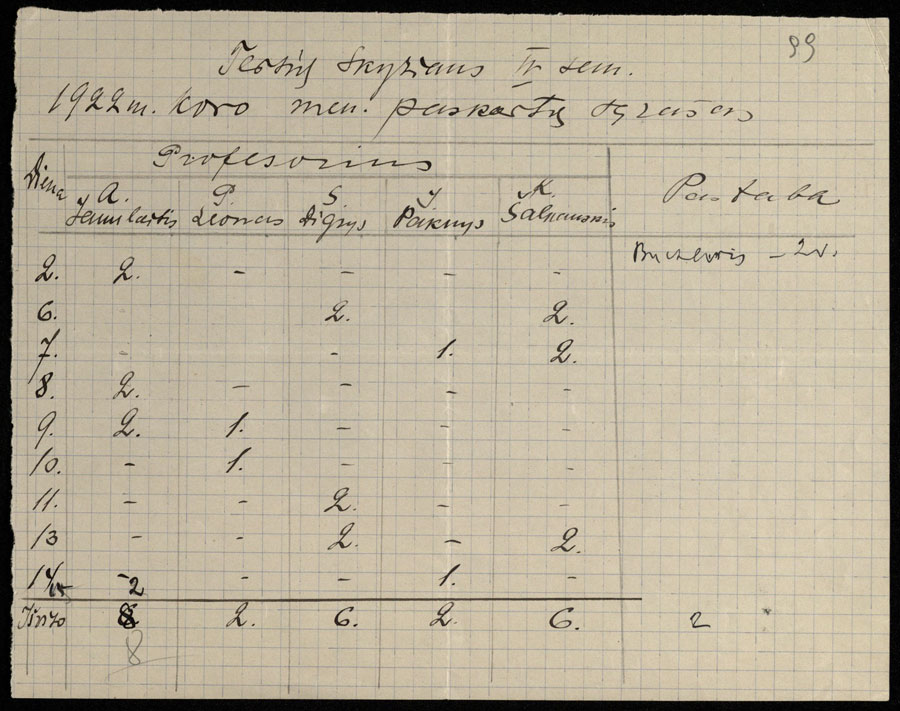 99
Teisių Skyriaus IV sem.
1922 m. kovo mėn. paskaitų sąrašas
Diena Profesorius Pastaba
A. P. S. J. K.
Janulaitis Leonas Digrys Paknys Šalkauskis
2. 2. - - - - - 2 v.
6. 2. 2.
7. - - 1. 2.
8. 2. - - - -
9. 2. 1. - - -
10. - 1. - - -
11. - - 2. - -
13 - - 2. - 2.
14/15 -2 - - 1. -
Išviso 8 2. 6. 2. 6. 2
8